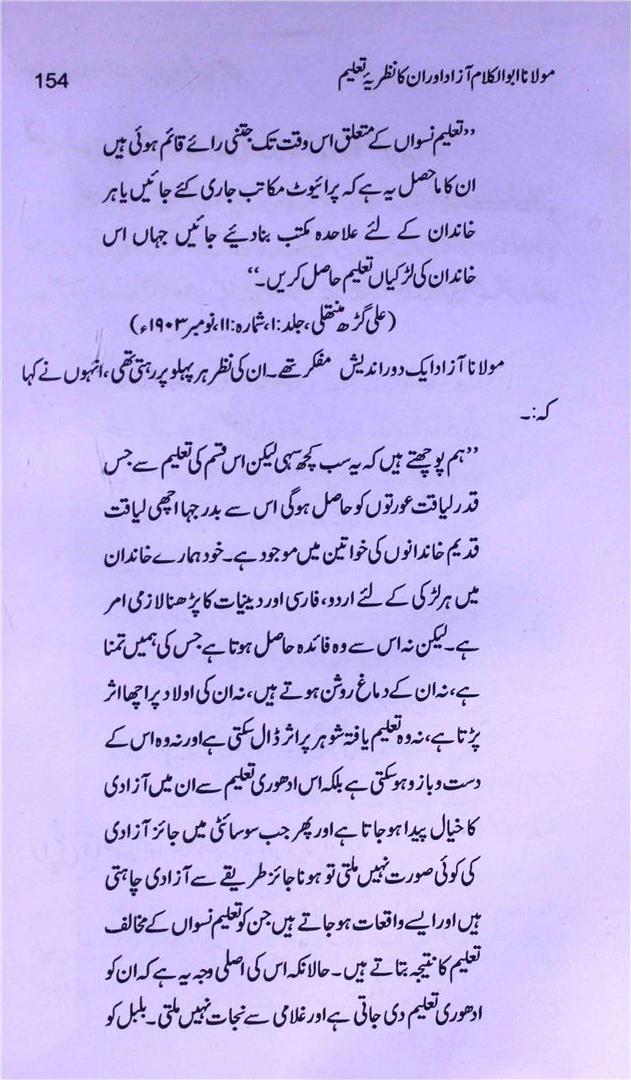 مولانا ابوالکلام آزاد اور ان کا نظریۂ تعلیم 154
”تعلیم نسواں کے متعلق اس وقت تک جتنی رائے قائم ہوئی ہیں
ان کا ماحصل یہ ہے کہ پرائیوٹ مکاتب جاری کئے جائیں یا ہر
خاندان کے لئے علاحدہ مکتب بنا دیئے جائیں جہاں اس
خاندان کی لڑکیاں تعلیم حاصل کریں۔“
(علی گڑھ منتھلی، جلد:۱، شمارہ:۱۱، نومبر ۱۹۰۳ء)
مولانا آزاد ایک دور اندیش مفکر تھے۔ ان کی نظر ہر پہلو پر رہتی تھی، انہوں نے کہا
کہ:۔
”ہم پوچھتے ہیں کہ یہ سب کچھ سہی لیکن اس قسم کی تعلیم سے جس
قدر لیاقت عورتوں کو حاصل ہوگی اس سے بدر جہا اچھی لیاقت
قدیم خاندانوں کی خواتین میں موجود ہے۔ خود ہمارے خاندان
میں ہر لڑکی کے لئے اردو، فارسی اور دینیات کا پڑھنا لازمی امر
ہے۔ لیکن نہ اس سے وہ فائدہ حاصل ہوتا ہے جس کی ہمیں تمنا
ہے، نہ ان کے دماغ روشن ہوتے ہیں، نہ ان کی اولاد پر اچھا اثر
پڑتا ہے، نہ وہ تعلیم یافتہ شوہر پر اثر ڈال سکتی ہے اور نہ وہ اس کے
دست و بازو ہو سکتی ہے بلکہ اس ادھوری تعلیم سے ان میں آزادی
کا خیال پیدا ہو جاتا ہے اور پھر جب سوسائٹی میں جائز آزادی
کی کوئی صورت نہیں ملتی تو ہو ناجائز طریقے سے آزادی چاہتی
ہیں اور ایسے واقعات ہو جاتے ہیں جن کو تعلیم نسواں کے مخالف
تعلیم کا نتیجہ بتاتے ہیں۔ حالانکہ اس کی اصلی وجہ یہ ہے کہ ان کو
ادھوری تعلیم دی جاتی ہے اور غلامی سے نجات نہیں ملتی۔ بلبل کو